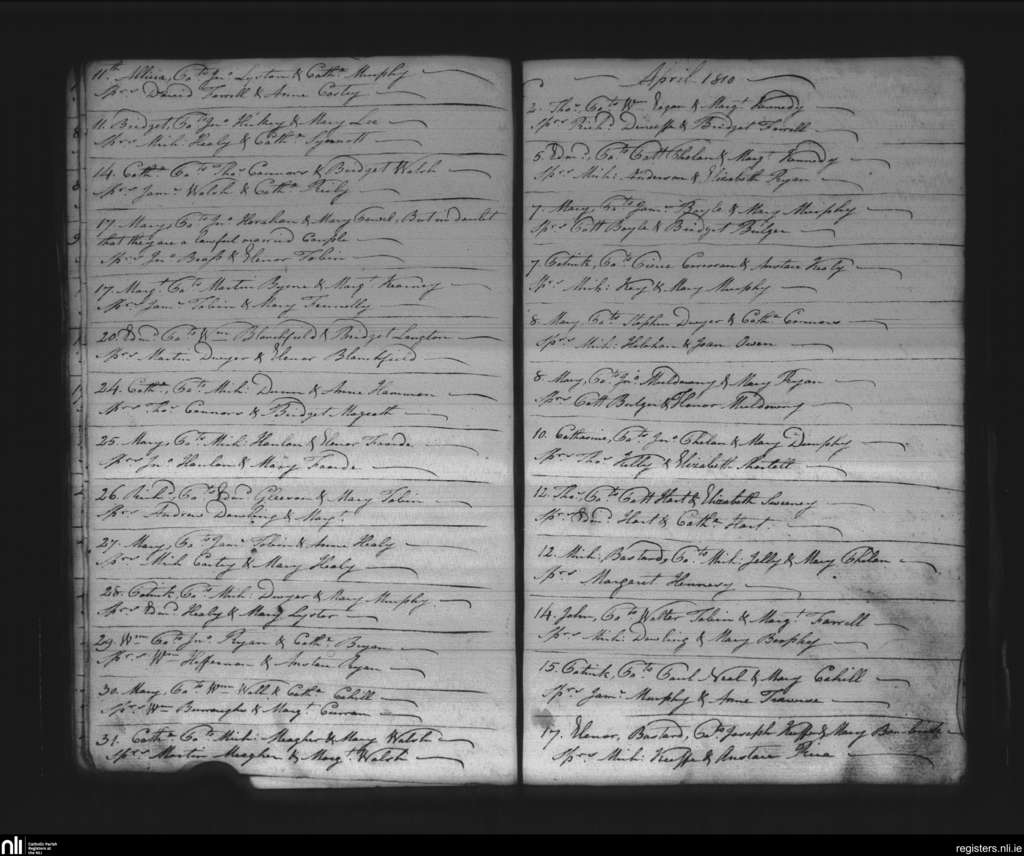 11th Allicia, Ca.to Jno Lyston & Cath.a Murphy
Sp.rs David Fowell & Anne Costey
11. Bridget, Ca.to Jno Hickey & Mary Lee
Sp.rs Mich: Healy & Cath.a Synnott
14. Cath.a Ca.to Tho.s Connors & Bridget Walsh
Sp.rs Jam.s Walsh & Cath.a Reily
17. Mary, Ca.to Jno Horahan & Mary But in doubt
that they are a lawful married Couple
Sp.rs Jno & Elenor Tobin
17. Marg.t Ca.to Martin Byrne & Marg.t Kearney
Sp.rs Jam.s Tobin & Mary Fennelly
20. Edm.d Ca.to Wm Blanchfield & Bridget Langton
Sp.rs Martin Dwyer & Elenor Blanchfield
24. Cath.a Ca.to Mich: Dunn & Anne Hammon
Sp.rs Tho.s Connors & Bridget Magrath
25. Mary, Ca.to Mich: Hanlon & Elenor Foarde
Sp.rs Jno Hanlon & Mary Foarde
26. Rich.d, Ca.to Edm.d & Mary Tobin
Sp.rs Andrew Dowling & Marg.t
27. Mary, Ca.to Jam.s Tobin & Anne Healy
Sp.rs Mich: & Mary Healy
28. Patrick, Ca.to Mich: Dwyer & Mary Murphy
Sp.rs Edm.d Healy & Mary Lyster
29. Wm Ca.to Jno Ryan & Cath.a Bryan
Sp.rs Wm Heffernan & Anstace Ryan
30. Mary, Ca.to Wm Wall & Cath.a Cahill
Sp.rs Wm Burroughs & Marg.t Curran
31. Cath.a Ca.to Mich: Meagher & Mary Walsh
Sp.rs Martin Meagher & Marg.t Walsh
April 1810
2. Tho.s Ca.to Wm Eagan & Marg.t Kennedy
Sp.rs Rich.d & Bridget Fowell
5. Edm.d Ca.to Patt Phelan & Marg.t Kennedy
Sp.rs Mich: Anderson & Elizabeth Ryan
7. Mary, Ca.to Jam.s Boyle & Mary Murphy
Sp.rs Patt Boyle & Bridget Bulger
7. Patrick, Ca.to Pierce Corcoran & Anstace Healy
Sp.rs Mich: Key & Mary Murphy
8. Mary Ca.to Stephen Dwyer & Cath.a Connors
Sp.rs Mich: Holohan & Joan Owen
8. Mary, Ca.to Jno Muldowny & Mary Ryan
Sp.rs Patt Bulger & Elenor Muldowny
10. Catharine, Ca.to Jno Phelan & Mary Dunphy
Sp.rs Tho.s Kelly & Elizabeth Shortall
12. Tho.s Ca.to Patt Hart & Elizabeth Sweeney
Sp.rs Edm.d Hart & Cath.a Hart
12. Mich: Bastard, Ca.to Mich: Jelly & Mary Phelan
Sp.rs Margaret Hennesy
14. John, Ca.to Walter Tobin & Marg.t Farrell
Sp.rs Mich: Dowling & Mary Brophy
15. Patrick, Ca.to Paul Neal & Mary Cahill
Sp.rs Jam.s Murphy & Anne
17. Elenor, Bastard, Ca.to Joseph Keeffe & Mary
Sp.rs Mich: Keeffe & Anstace
nli
Catholic Parish
Registers at
the NLI
registers.nli.ie